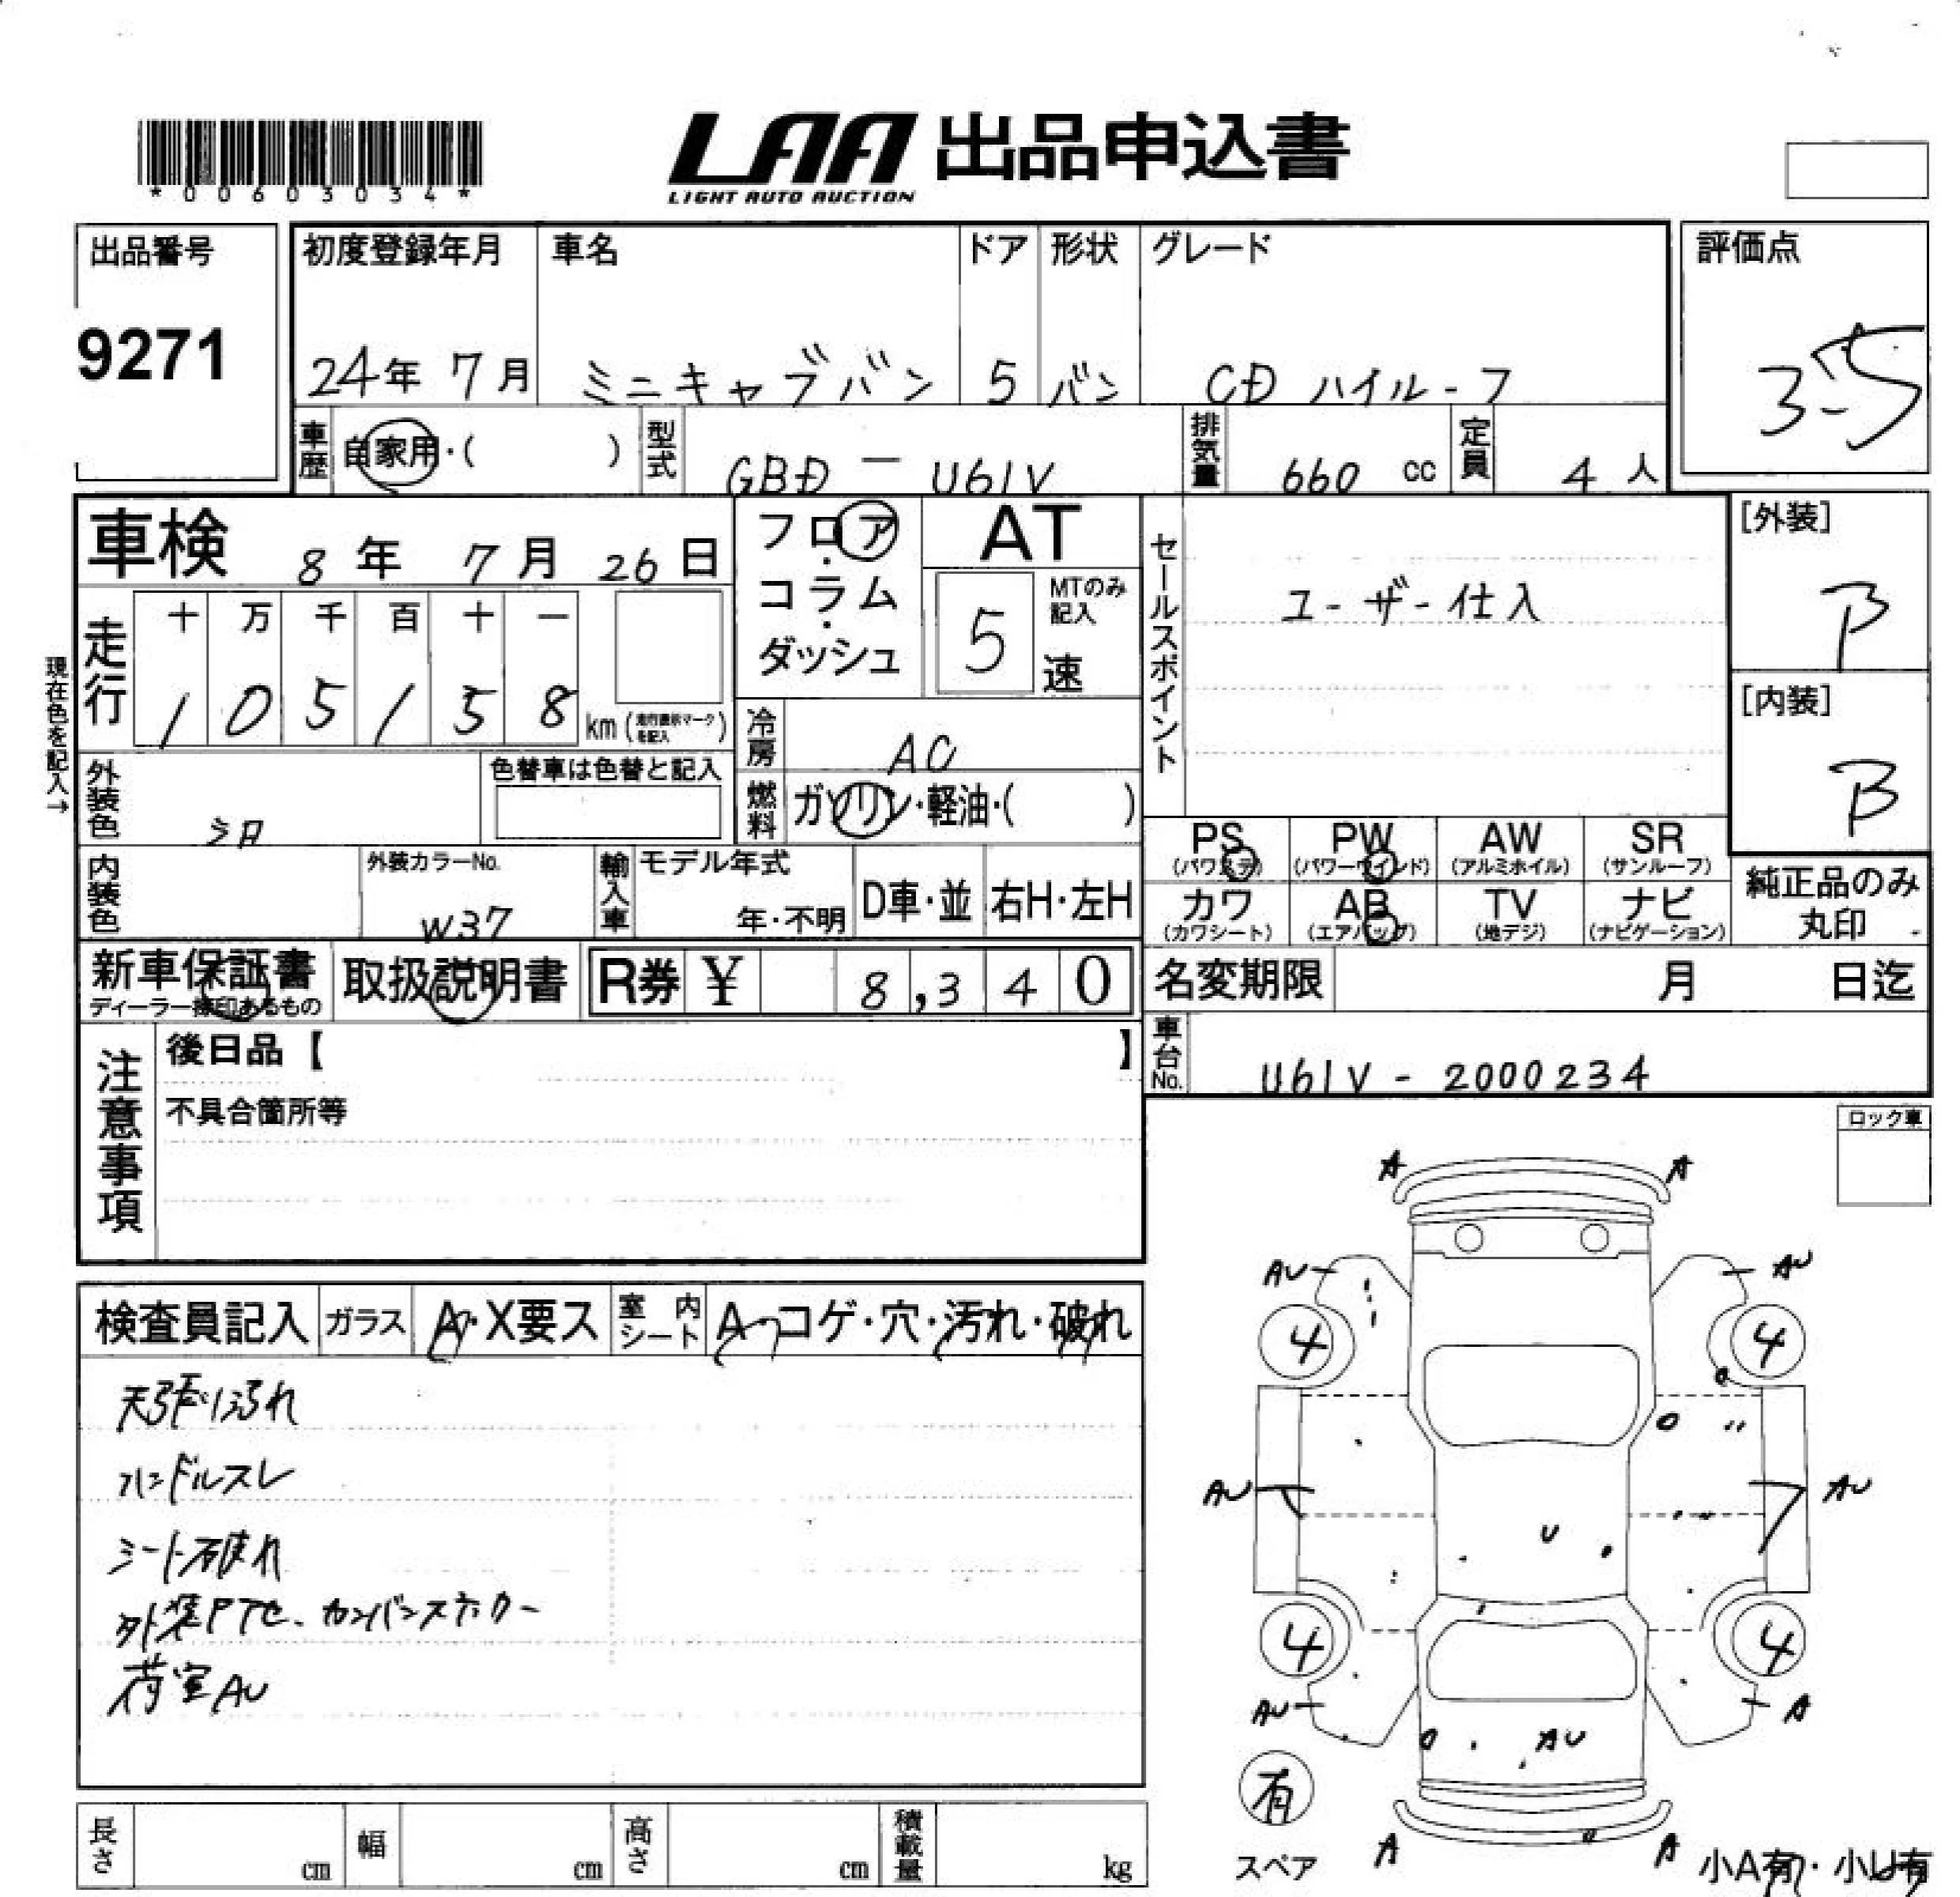 *00603034*
LAA 出品申込書
LIGHT AUTO AUCTION
出品番号
9271
初度登録年月
24年 7月
車名
ミニキャブバン
ドア
5
形状
バン
グレード
CD ハイルーフ
評価点
3.5
車歴 自家用・( )
型式 GBD - U61V
排気量 660 cc
定員 4 人
車検 8年 7月 26日
走行
十 万 千 百 十 一
1 0 5 1 5 8
km (走行表示マークを記入)
現在色を記入→
フロア・コラム・ダッシュ
AT
5 速
MTのみ記入
冷房 AC
燃料 ガソリン・軽油・( )
セールスポイント
ユーザー仕入
[外装]
B
[内装]
B
外装色
色替車は色替と記入
内装色
外装カラーNo.
W37
輸入車 モデル年式
年・不明
D車・並
右H・左H
PS (パワステ)
PW (パワーウインド)
AW (アルミホイル)
SR (サンルーフ)
カワ (カワシート)
AB (エアバッグ)
TV (地デジ)
ナビ (ナビゲーション)
純正品のみ
丸印
新車保証書
ディーラー捺印あるもの
取扱説明書
R券 ¥ 8,340
名変期限 月 日迄
車台No. U61V - 2000234
注意事項
後日品【 】
不具合箇所等
ロック車
検査員記入
ガラス A・X要ス
室内シート A・コゲ・穴・汚れ・破れ
天張り汚れ
ハンドルスレ
シート破れ
外装PTセ、カンバンステッカー
荷室AU
A A
AU AU
4 4
AU AU
U
4 4
AU A
AU
有
スペア
A A
小A有・小U有
長さ cm
幅 cm
高さ cm
積載量 kg